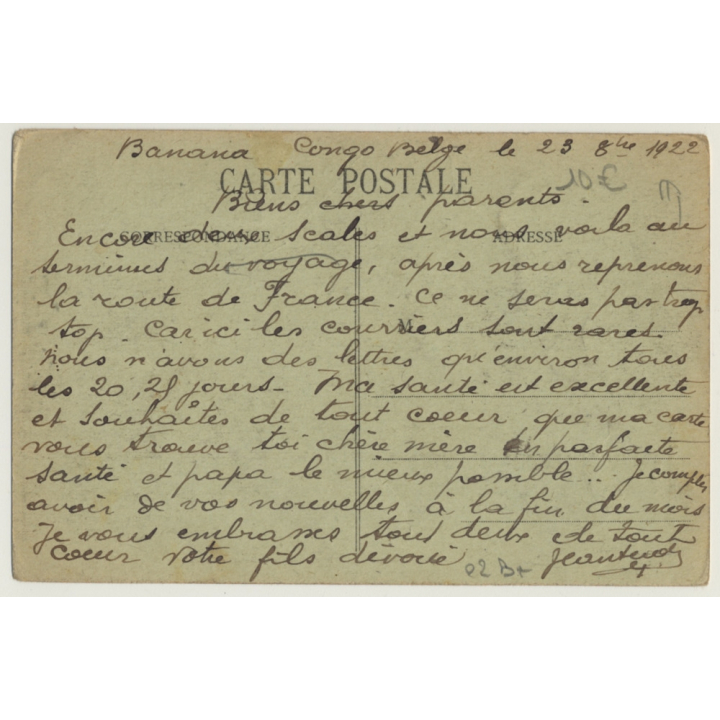 Banana Congo Belge le 23 8bre 1922
10 €
CARTE POSTALE
Biens chers parents.
CORRESPONDANCE
ADRESSE
Encore deux scales et nous voila au
terminus du voyage, après nous reprenons
la route de France. Ce ne seras pas trop
top. Car ici les courriers sont rares.
Nous n'avons des lettres qu'environ tous
les 20, 25 jours - Ma santé est excellente
et souhaîtes de tout coeur que ma carte
vous trouve toi chère mère en parfaete
santé et papa le mieux possible... Je comptes
avoir de vos nouvelles à la fin du mois
Je vous embrasses tous deux de tout
coeur votre fils dévoué
e2 B+